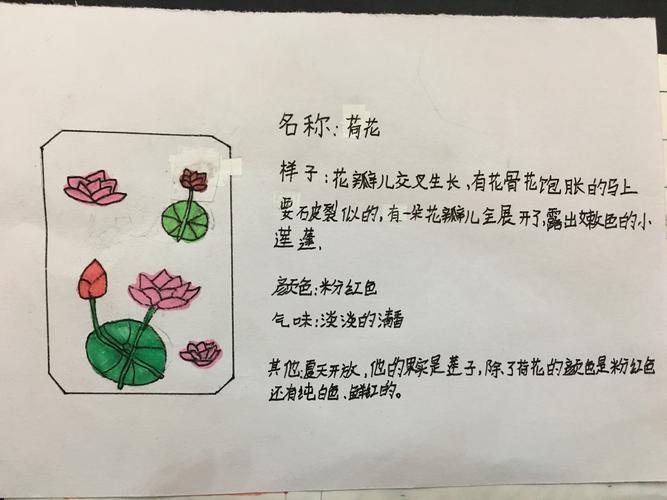 名称:荷花
样子:花瓣儿交叉生长,有花骨花饱胀的马上
要破裂似的,有一朵花瓣儿全展开了,露出嫩色的小
莲蓬.
颜色:粉红色
气味:淡淡的清香
其他:夏天开放,他的果实是莲子,除了荷花的颜色是粉红色
还有纯白色、鲜红的。